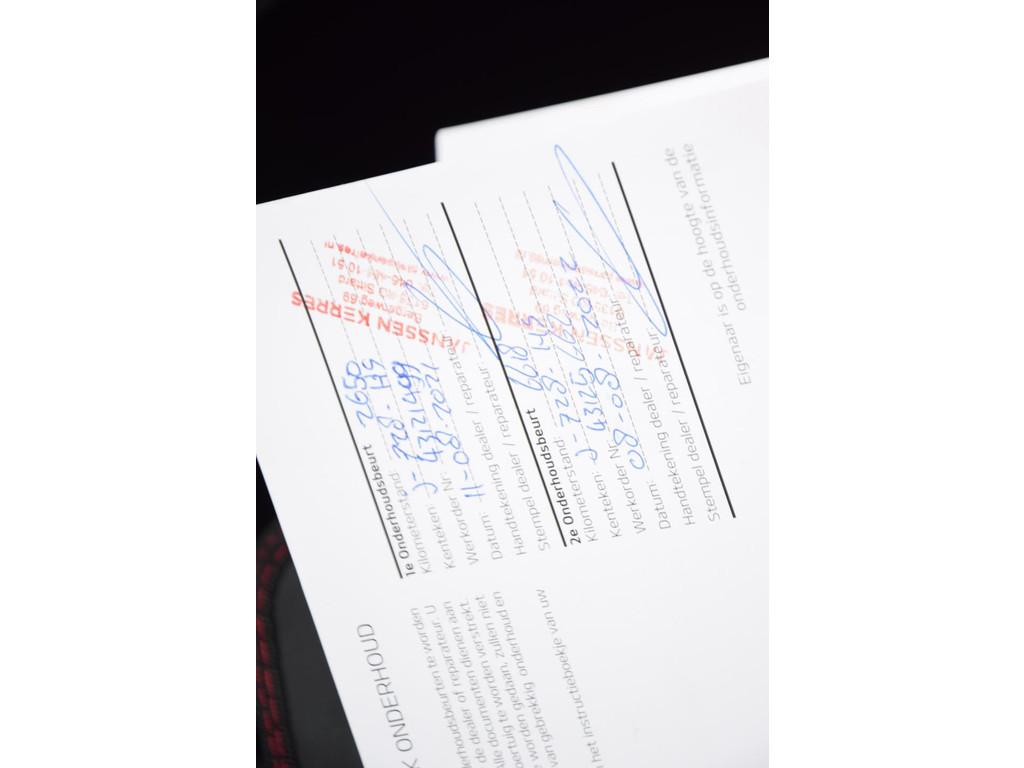 K ONDERHOUD
erhoudsbeurten te worden
dealer of reparateur. U
de dealer of reparenen aan
de documenten dienen verstrekt.
Alle documenten worden niet
oertuig te worden, zullen en
worden gedaan, onderhoud
van gebrekkig onderhoud en
het instructieboekje van uw
1e Onderhoudsbeurt
Kilometerstand: 2650
Kenteken: J-728-HS
Werkorder Nr: 43121499
Datum: 11-08-2021
Handtekening dealer / reparateur:
Stempel dealer / reparateur:
JANSSEN KERRES
Bergerweg 69
6135 KD Sittard
2e Onderhoudsbeurt
Kilometerstand: 6618
Kenteken: J-728-HS
Werkorder Nr: 43125662
Datum: 08-08-2022
Handtekening dealer / reparateur:
Stempel dealer / reparateur:
JANSSEN KERRES
Eigenaar is op de hoogte van de
onderhoudsinformatie